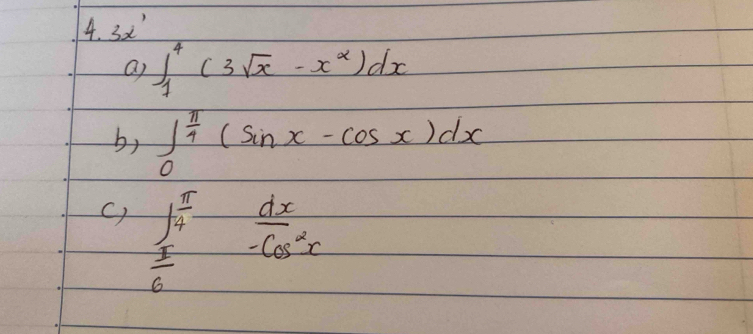 4. 3x'
a) ∫₁⁴ (3√x - x²)dx
b) ∫₀^(π/4) (Sin x - cos x)dx
c) ∫_(π/6)^(π/4) dx/(-Cos²x)